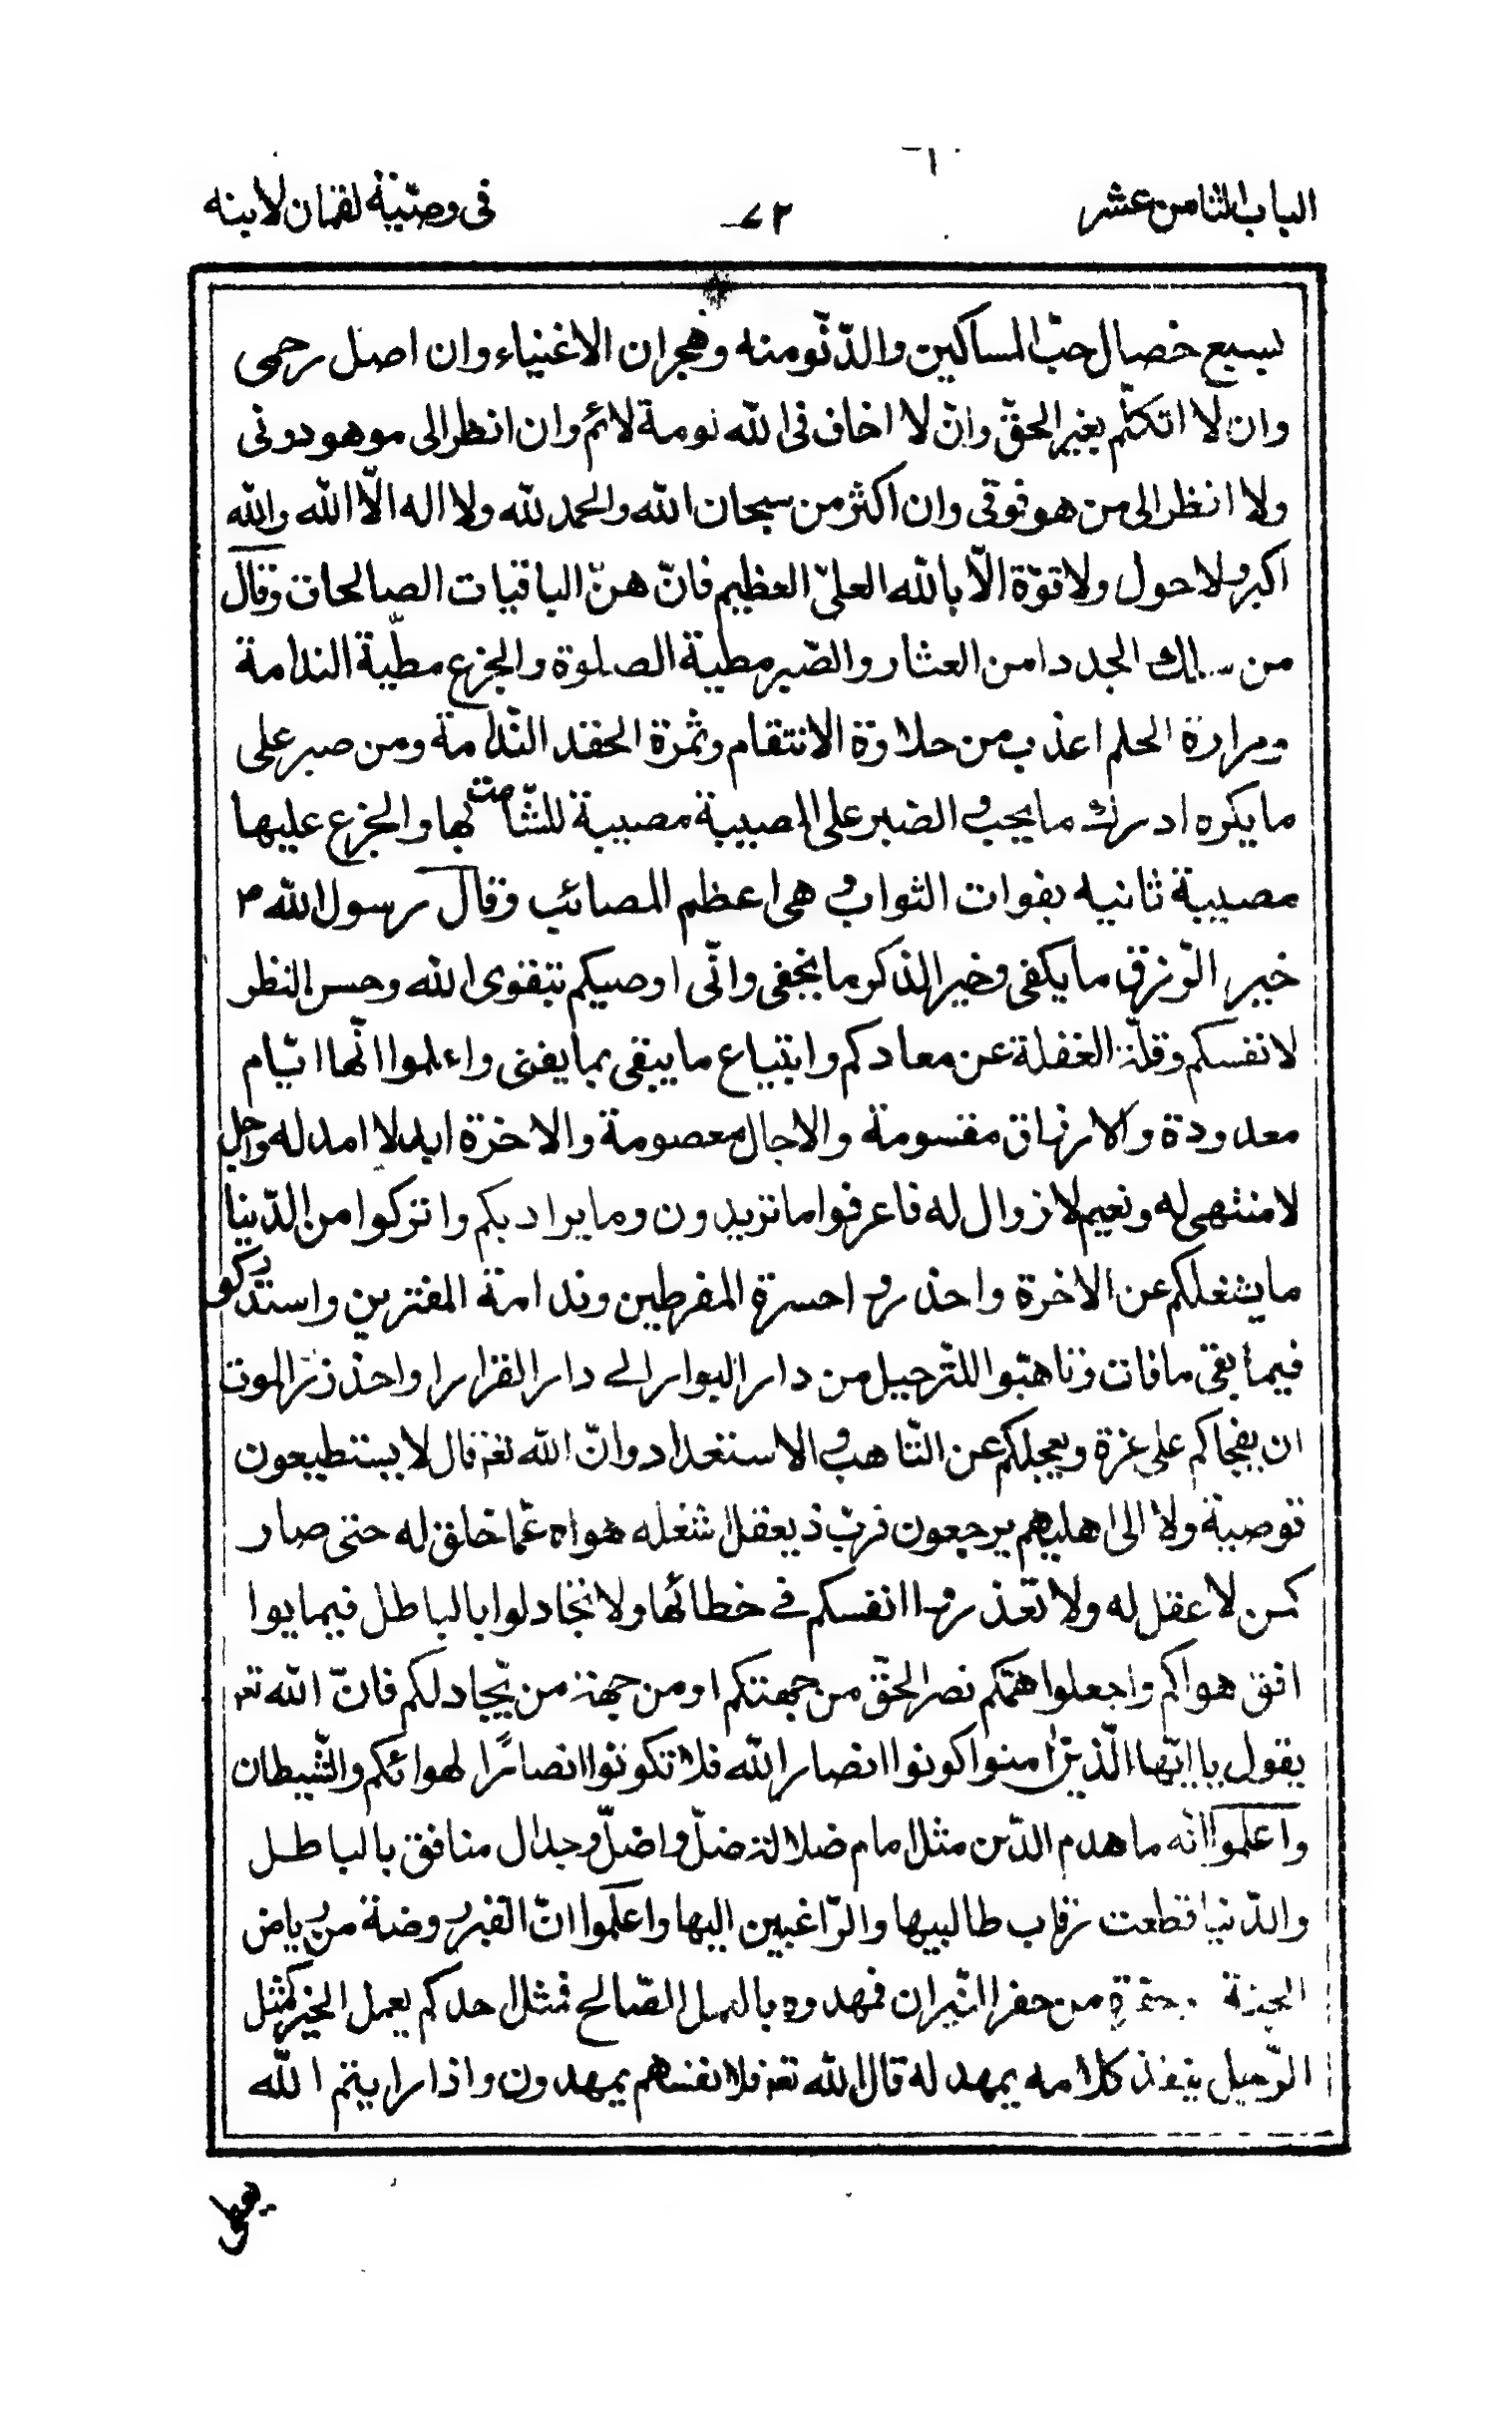 الباب الثامن عشر
٧٢
فى وصيّة لقمان لابنه
بسبع خصال حبّ المساكين والدّنّو منه وهجران الاغنياء وان اصل رحمى
وان لا اتكلّم بغير الحقّ وان لا اخاف فى الله لومة لائم وان انظر الى موهو دونى
ولا انظر الى من هو فوقى وان اكثر من سبحان الله والحمد لله ولا اله الّا الله والله
اكبر ولا حول ولا قوّة الّا بالله العلىّ العظيم فانّ هنّ الباقيات الصالحات وقال
من سلك الجدد امن العثار والصّبر مطية الصلوة والجزع مطيّة الندامة
ومرارة الحلم اعذب من حلاوة الانتقام وثمرة الحقد النّدامة ومن صبر على
ما يكره ادرك ما يحب و الصبر على المصيبة مصيبة للشّامت لها والجزع عليها
مصيبة ثانيه بفوات الثواب و هى اعظم المصائب وقال رسول الله ص
خير الرّزق ما يكفى وخير الذكر ما يخفى وانّى اوصيكم بتقوى الله وحسن النظر
لانفسكم وقلّة الغفلة عن معادكم وابتياع ما يبقى بما يفنى واعلموا انّها ايّام
معدودة والارزاق مقسومة والاجال معصومة والاخرة ابد لا امد له واجل
لا منتهى له ونعيم لا زوال له فاعرفوا ما تريدون وما يراد بكم واتركوا من الدّنيا
ما يشغلكم عن الاخرة واحذروا حسرة المفرطين وندامة المفترين واستدركوا
فيما بقى ما فات وتاهبّوا للتّرحيل من دار البوار الى دار القرار واحذروا الموت
ان يفجاكم على غرة ويعجلكم عن التّاهب و الاستعداد وانّ الله تعز قال لا يستطيعون
توصية ولا الى اهليهم يرجعون فربّ ذى عقل اشغله هواه عمّا خلق له حتى صار
كمن لا عقل له ولا تعّذروا انفسكم فى خطائها ولا تجادلوا بالباطل فيما يوا
افق هواكم واجعلوا همّكم نصر الحقّ من جهتكم او من جهة من يّجادلكم فانّ الله تعز
يقول يا ايّها الّذين امنوا كونوا انصار الله فلا تكونوا انصارًا لهوائكم والشّيطان
واعلموا انه ما هدم الدّين مثل امام ضلالة ضلّ واضلّ وجدال منافق بالباطل
والدّنيا قطعت رقاب طالبيها والرّاغبين اليها واعلموا انّ القبر روضة من رياض
الجنة من حفر النّيران فمهدوه بالعمل الصّالح فمثل احدكم يعمل الخير كمثل
الرّجيل ينفذ كلامه يمهد له قال الله تعز فلانفسهم يمهدون واذا رايتم الله